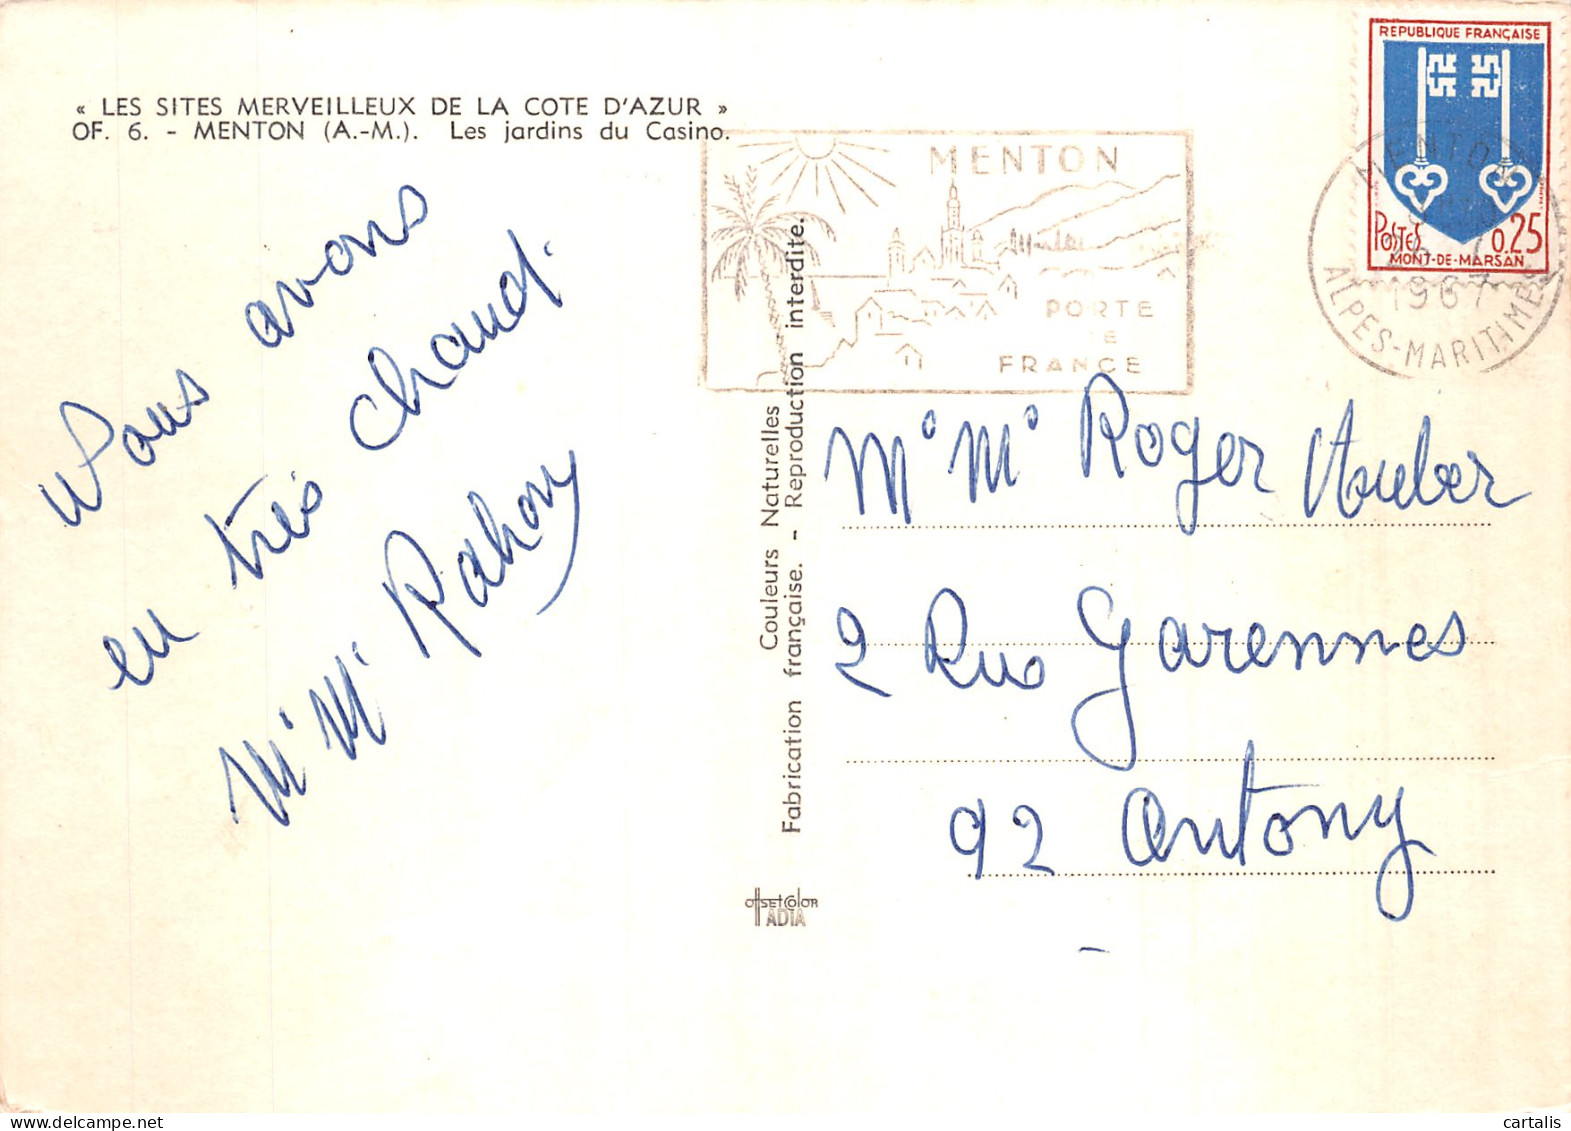 « LES SITES MERVEILLEUX DE LA COTE D'AZUR »
OF. 6. - MENTON (A.-M.). Les jardins du Casino.
Nous avons
eu très chaud.
Mr Me Rahouy
Couleurs Naturelles
Fabrication française. - Reproduction interdite.
OFFSETCOLOR
ADIA
MENTON
PORTE
DE
FRANCE
REPUBLIQUE FRANÇAISE
POSTES 0,25
MONT-DE-MARSAN
MENTON
1967
ALPES-MARITIMES
Mr Me Roger Auber
2 Rue Garennes
92 Antony
cartalis
www.delcampe.net